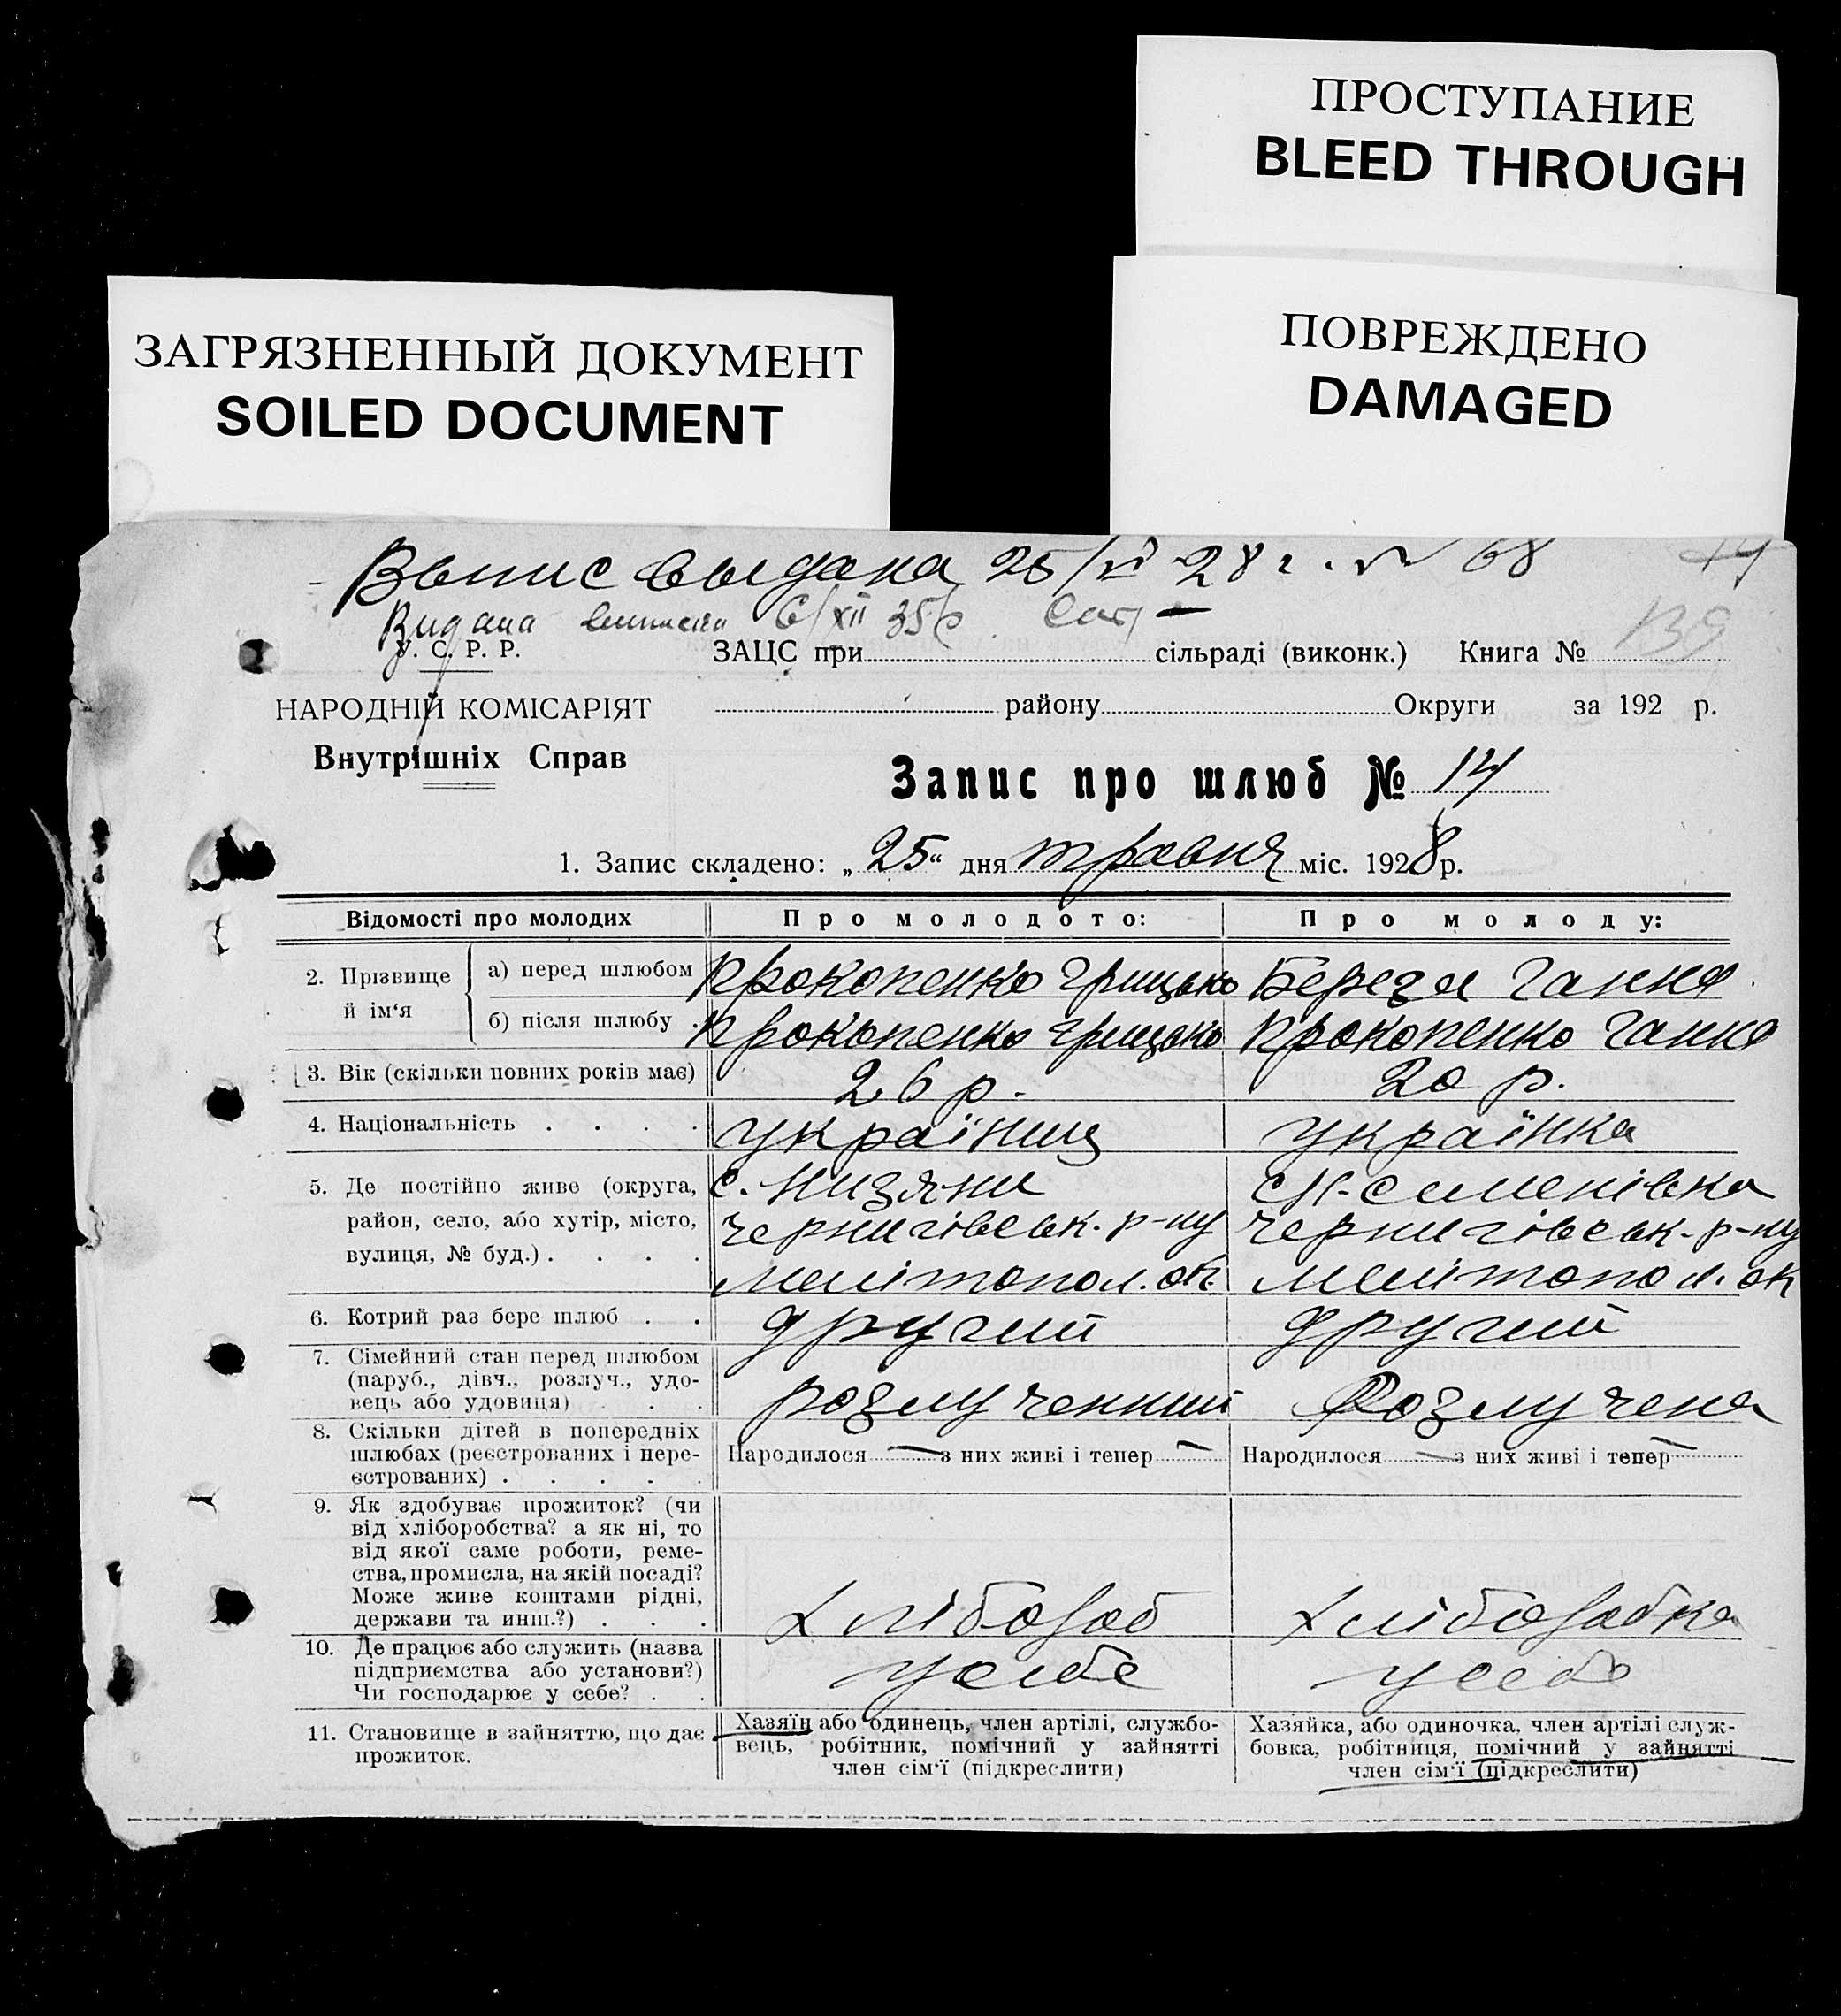 ПРОСТУПАНИЕ
BLEED THROUGH
ЗАГРЯЗНЕННЫЙ ДОКУМЕНТ
SOILED DOCUMENT
ПОВРЕЖДЕНО
DAMAGED
Выпис выдана 25/VI 28 г. № 68
Видана выписка 6/XII 35 р.
139
У. С. Р. Р.
ЗАЦС при сільраді (виконк.) Книга №
НАРОДНІЙ КОМІСАРІЯТ
району Округи за 192 р.
Внутрішніх Справ
Запис про шлюб № 14
1. Запис складено: „25“ дня травня міс. 1928 р.
Відомості про молодих Про молодого: Про молоду:
2. Прізвище й ім'я
а) перед шлюбом Прокопенко Грицько Береза Ганна
б) після шлюбу . Прокопенко Грицько Прокопенко Ганна
3. Вік (скільки повних років має) 26 р. 20 р.
4. Національність . . . . українец українка
5. Де постійно живе (округа, с. Низяни с. Н-Семенівка
район, село, або хутір, місто, чернигівськ. р-ну чернигівськ. р-ну
вулиця, № буд.) . . . . мелітопол. ок. мелітопол. ок
6. Котрий раз бере шлюб . . другий другий
7. Сімейний стан перед шлюбом
(паруб., дівч., розлуч., удо-
вець або удовиця) . . . розлученний Розлучена
8. Скільки дітей в попередніх
шлюбах (реєстрованих і нере- Народилося — з них живі і тепер — Народилося — з них живі і тепер —
єстрованих) . . . . .
9. Як здобуває прожиток? (чи
від хліборобства? а як ні, то
від якої саме роботи, реме-
ства, промисла, на якій посаді?
Може живе коштами рідні,
держави та инш.?) . . . Хлібороб Хліборобка
10. Де працює або служить (назва
підприємства або установи?) у себе у себе
Чи господарює у себе? . .
11. Становище в зайняттю, що дає
прожиток.
Хазяїн або одинець, член артілі, службо-
вець, робітник, помічний у зайнятті
член сім'ї (підкреслити)
Хазяйка, або одиночка, член артілі служ-
бовка, робітниця, помічний у зайнятті
член сім'ї (підкреслити)